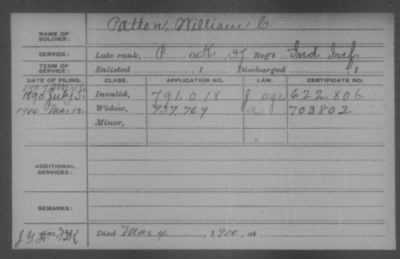 NAME OF SOLDIER: Patton, William C.
SERVICE: Late rank, P Co. H. 37 Regt Ind. Inf.
TERM OF SERVICE: Enlisted , 1 Discharged , 1
DATE OF FILING. CLASS. APPLICATION NO. LAW. CERTIFICATE NO.
1890 July 5 Invalid, 791.018 622.806
1910 Mar Widow, 937,769 703802
Minor,
ADDITIONAL SERVICES:
REMARKS:
Died Mar 4, 1910, at